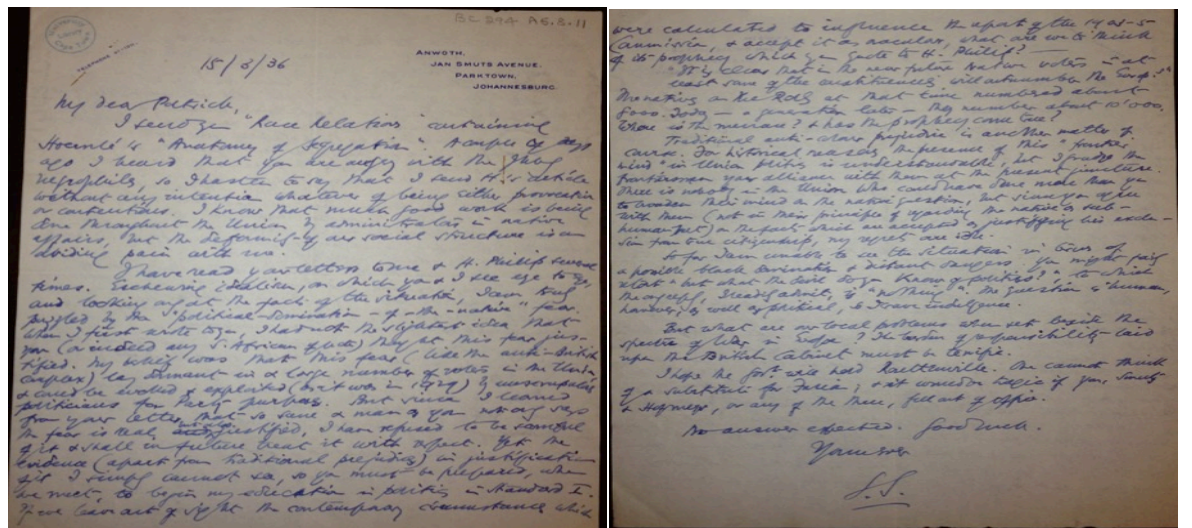 BC 294 A6.8.11
ANWOTH,
JAN SMUTS AVENUE,
PARKTOWN,
JOHANNESBURG.
15/3/36
My dear Patrick,
I send you "Race Relations" containing
Hoernlé's "Anatomy of Segregation". A couple of days
ago I heard that you are angry with the
negrophils, so I hasten to say that I send H's article
without any intention whatever of being either provocative
or contentious. I know that much good work is being
done throughout the Union by administrators in native
affairs, but the deformity of our social structure is an
abiding pain with me.
I have read your letters to me & H. Philip several
times. Eschewing idealism, on which you & I see eye to eye,
and looking only at the facts of the situation, I am truly
puzzled by the "political-domination-of-the-native" fear.
When I first wrote to you, I had not the slightest idea that
you (or indeed any S. African of note) thought this fear jus-
tified. My belief was that this fear (like the anti-British
complex) lay dormant in a large number of voters in the Union
& could be evoked & exploited (as it was in 1929) by unscrupulous
politicians for Party purposes. But since I learned
from your letter, that so sane a man as you not only says
the fear is real, but justified, I have refused to be scornful
of it & shall in future treat it with respect. Yet the
evidence (apart from traditional prejudice) in justification
of it I simply cannot see, so you must be prepared, when
we meet, to begin my education in politics in Standard I.
If we leave out of sight the contemporary circumstances which
were calculated to influence the report of the 1903-5
Commission, & accept it as oracular, what are we to think
of its prophecy which you quote to H. Philip? —
"It is clear that in the near future Native voters in at
least some of the constituencies will outnumber the
The natives on the Rolls at that time numbered about
8000. Today — a generation later — they number about 10'000.
Where is the menace, & has the prophecy come true?
Traditional anti-colour prejudice is another matter of
course. For historical reasons, the presence of this "frontier
mind" in Union politics is understandable, but I grudge the
frontiersmen your alliance with them at the present juncture.
There is nobody in the Union who could have done more than you
to broaden their mind on the native question, but since you agree
with them (not in their principle of regarding the native as sub-
human) on the facts which are accepted as justifying his exclu-
sion from true citizenship, my regrets are idle.
So far I am unable to see the situation in terms of
a possible black domination & distant dangers. You might fairly
retort "but what the devil do you know of politics?" to which
I readily admit, is "nothing". The question is human,
however, as well as political, so I crave indulgence.
But what are our local problems when set beside the
spectre of War in Europe? The burden of responsibility laid
upon the British Cabinet must be terrific.
I hope the Govt. will hold One cannot think
of a substitute for & it would be tragic if you, Smuts
& or any of the three, fell out of office.
No answer expected. Good luck.
Yours ever